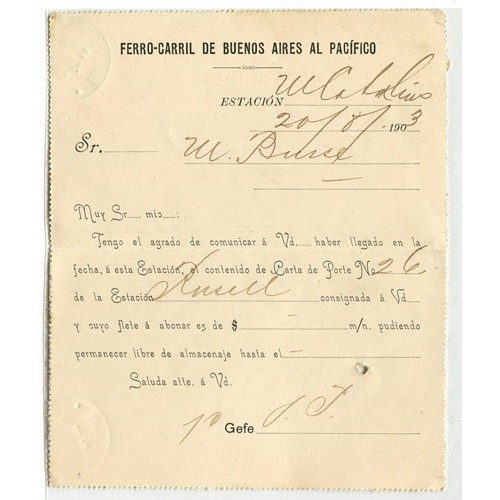 FERRO-CARRIL DE BUENOS AIRES AL PACÍFICO
ESTACIÓN
20/8/ 1903
Sr. M.
Muy Sr mio:
Tengo el agrado de comunicar á Vd haber llegado en la
fecha, á esta Estación, el contenido de Carta de Porte No 26
de la Estación Russell consignada á Vd
y cuyo flete á abonar es de $ — m/n. pudiendo
permanecer libre de almacenaje hasta el —
Saluda atte. á Vd.
Gefe